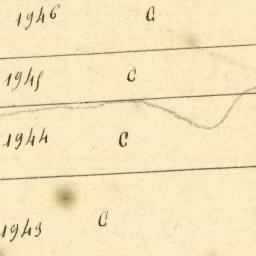 1946 C
1945 C
1944 C
1943 C